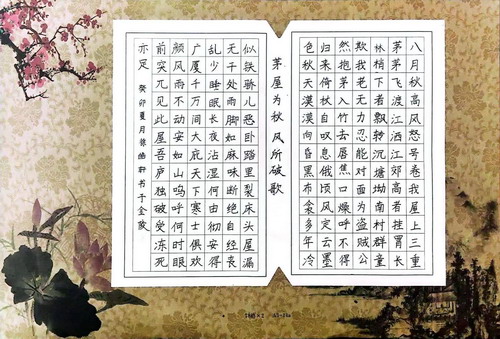 八月秋高风怒号卷我屋上三重
茅茅飞渡江洒江郊高者挂罥长
林梢下者飘转沉塘坳南村群童
欺我老无力忍能对面为盗贼公
然抱茅入竹去唇焦口燥呼不得
归来倚杖自叹息俄顷风定云墨
色秋天漠漠向昏黑布衾多年冷
茅屋为秋风所破歌
似铁骄儿恶卧踏里裂床头屋漏
无干处雨脚如麻未断绝自经丧
乱少睡眠长夜沾湿何由彻安得
广厦千万间大庇天下寒士俱欢
颜风雨不动安如山呜呼何时眼
前突兀见此屋吾庐独破受冻死
亦足
癸卯夏月 书于金陵